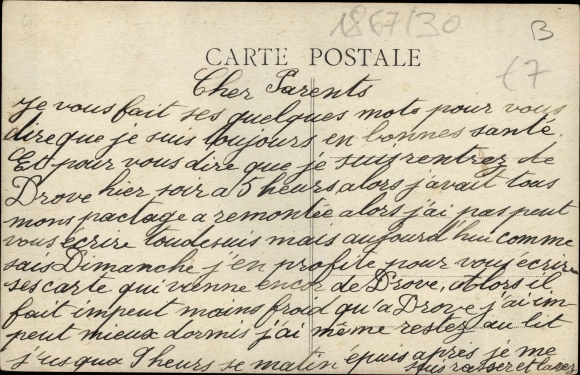 1867/30
B
CARTE POSTALE
€7
Cher Parents
Je vous fait ses quelques mots pour vous
dire que je suis toujours en bonnes santé.
Et pour vous dire que je suis rentrez de
Drove hier soir a 5 heurs alors j'avait tous
mons pactage a remontée alors j'ai pas peut
vous écrire toudesuis mais aujourd'hui comme
sais Dimanche j'en profite pour vous écrire
ses carte qui vienne encor de Drove, alors il
fait impeut moins froid qu'a Drove j'ai im
peut mieux dormis j'ai même restez au lit
j'usqua 9 heurs se matin épuis après je me
suis raser et lavez